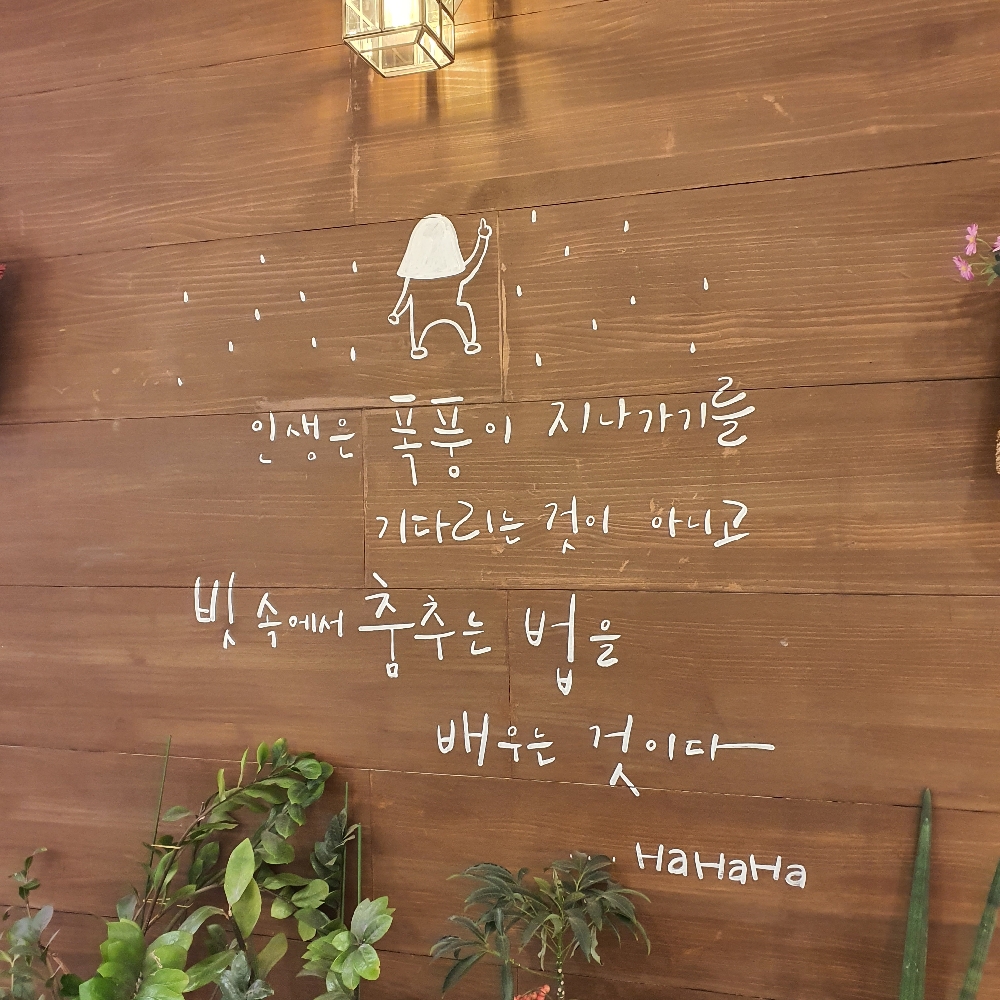 인생은 폭풍이 지나가기를
기다리는 것이 아니고
빗속에서 춤추는 법을
배우는 것이다
HaHaHa